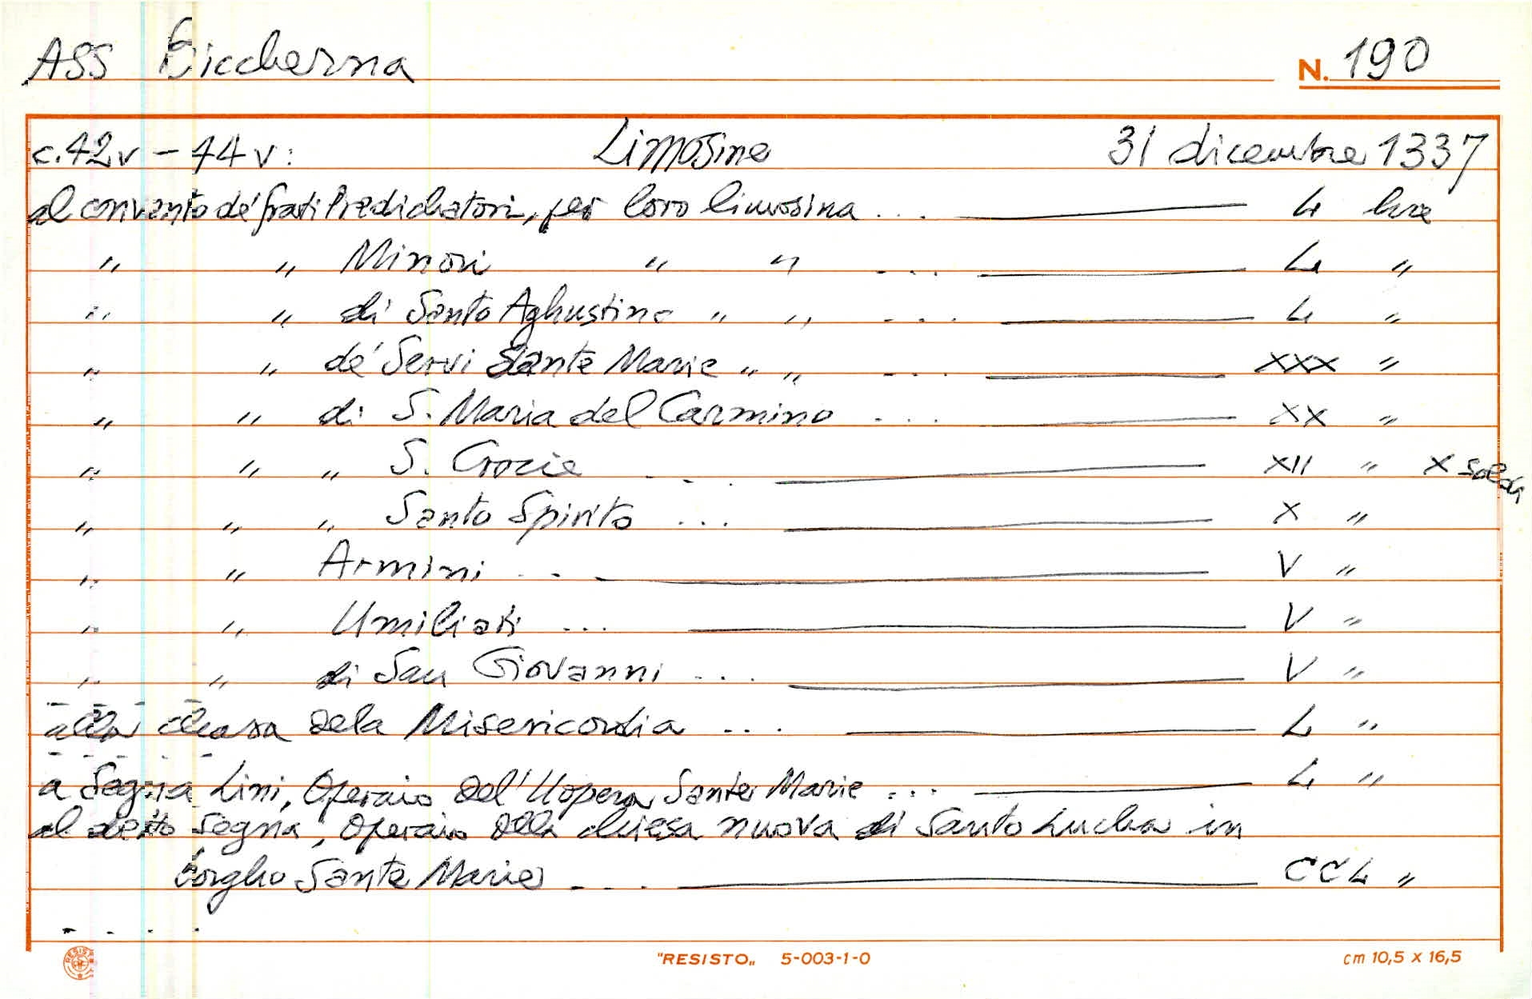 ASS Biccherna N. 190
c. 42v - 44v: Limosine 31 dicembre 1337
al convento de' frati Predichatori, per loro limosina ... L lire
" " Minori " " ... L "
" " di Santo Aghustino " " ... L "
" " de' Servi Sante Marie " " ... XXX "
" " di S. Maria del Carmino ... XX "
" " " S. Crocie ... XII " X soldi
" " " Santo Spirito ... X "
" " Armini ... V "
" " Umiliati ... V "
" " di San Giovanni ... V "
alla chasa dela Misericordia ... L "
a Segnia Lini, Operaio del' Uopera Sante Marie ... L "
al detto Segna, Operaio della chiesa nuova di Santo Lucha in
borgho Sante Marie ... CCL "
.....
"RESISTO" 5-003-1-0 cm 10,5 x 16,5